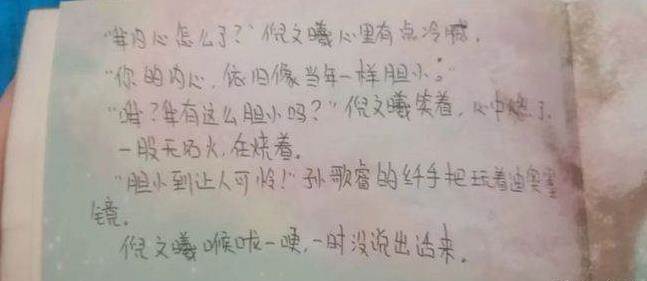 "我内心怎么了？"倪文曦心里有点冷臧。
"你的内心，依旧像当年一样胆小。"
"啡？我有这么胆小吗？"倪文曦笑着，心中燃了
一股无名火，在烧着。
"胆小到让人可怜！"孙歌睿的纤手把玩着迪奥
镜。
倪文曦喉咙一哽，一时没说出话来。